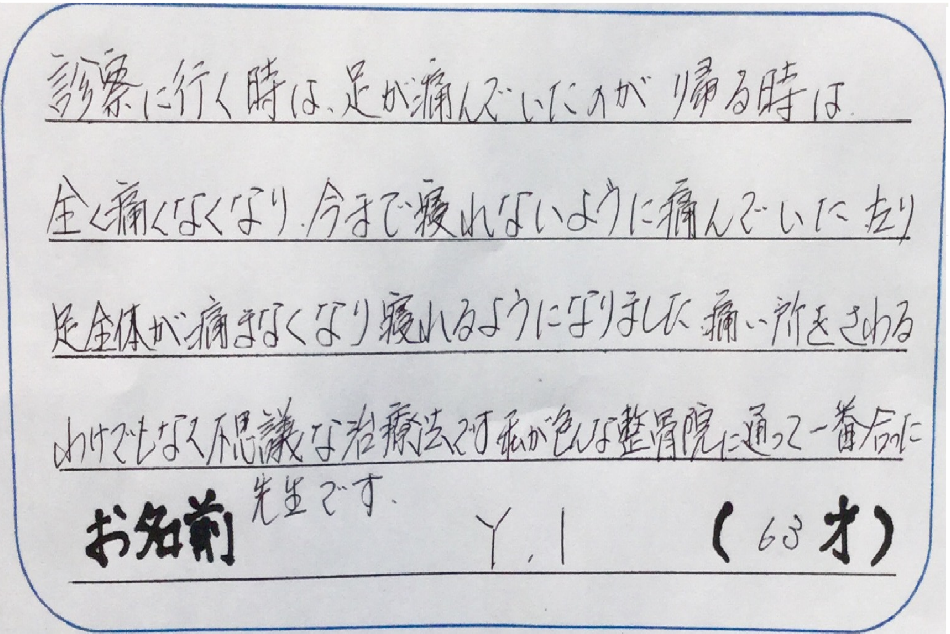 診察に行く時は、足が痛んでいたのが帰る時は、
全く痛くなくなり、今まで寝れないように痛んでいた、左り
足全体が痛まなくなり寝れるようになりました。痛い所をさわる
わけでもなく不思議な治療法です私が色んな整骨院に通って一番合った
先生です.
お名前 Y.I (63才)